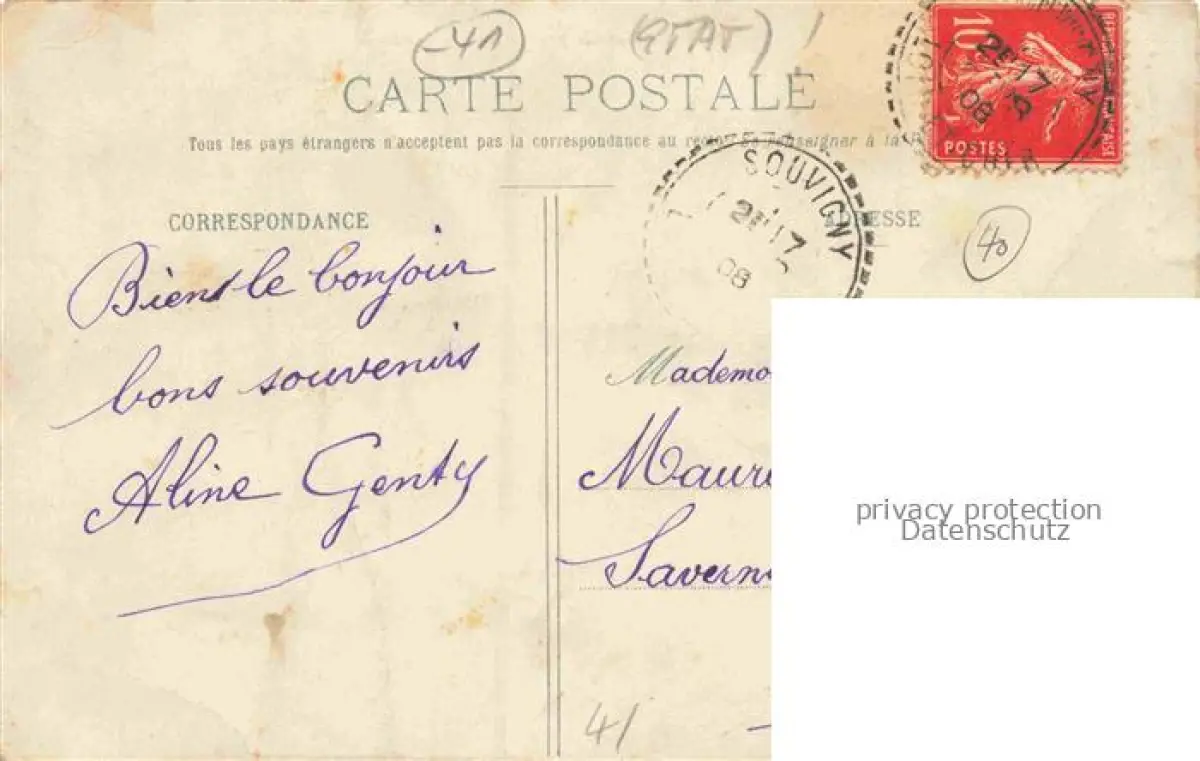 -41
(ETAT)!
CARTE POSTALE
Tous les pays étrangers n'acceptent pas la correspondance au recto. Se renseigner à la
10
POSTES
FRANÇAISE
2E 17
08
SOUVIGNY
2E 17
08
CORRESPONDANCE
ADRESSE
40
Biens le bonjour
bons souvenirs
Aline Genty
Mademo
Maur
Savern
privacy protection
Datenschutz
41